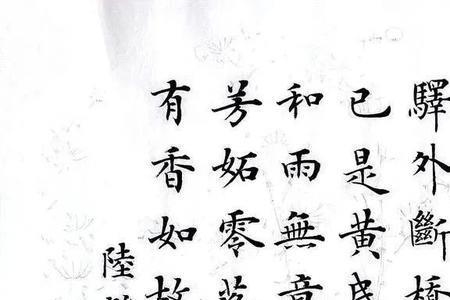 驛外斷橋
已是黃昏
和雨無意
芳妬零落
有香如故
陸